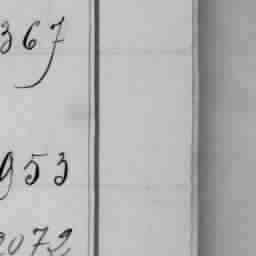 367
953
2072